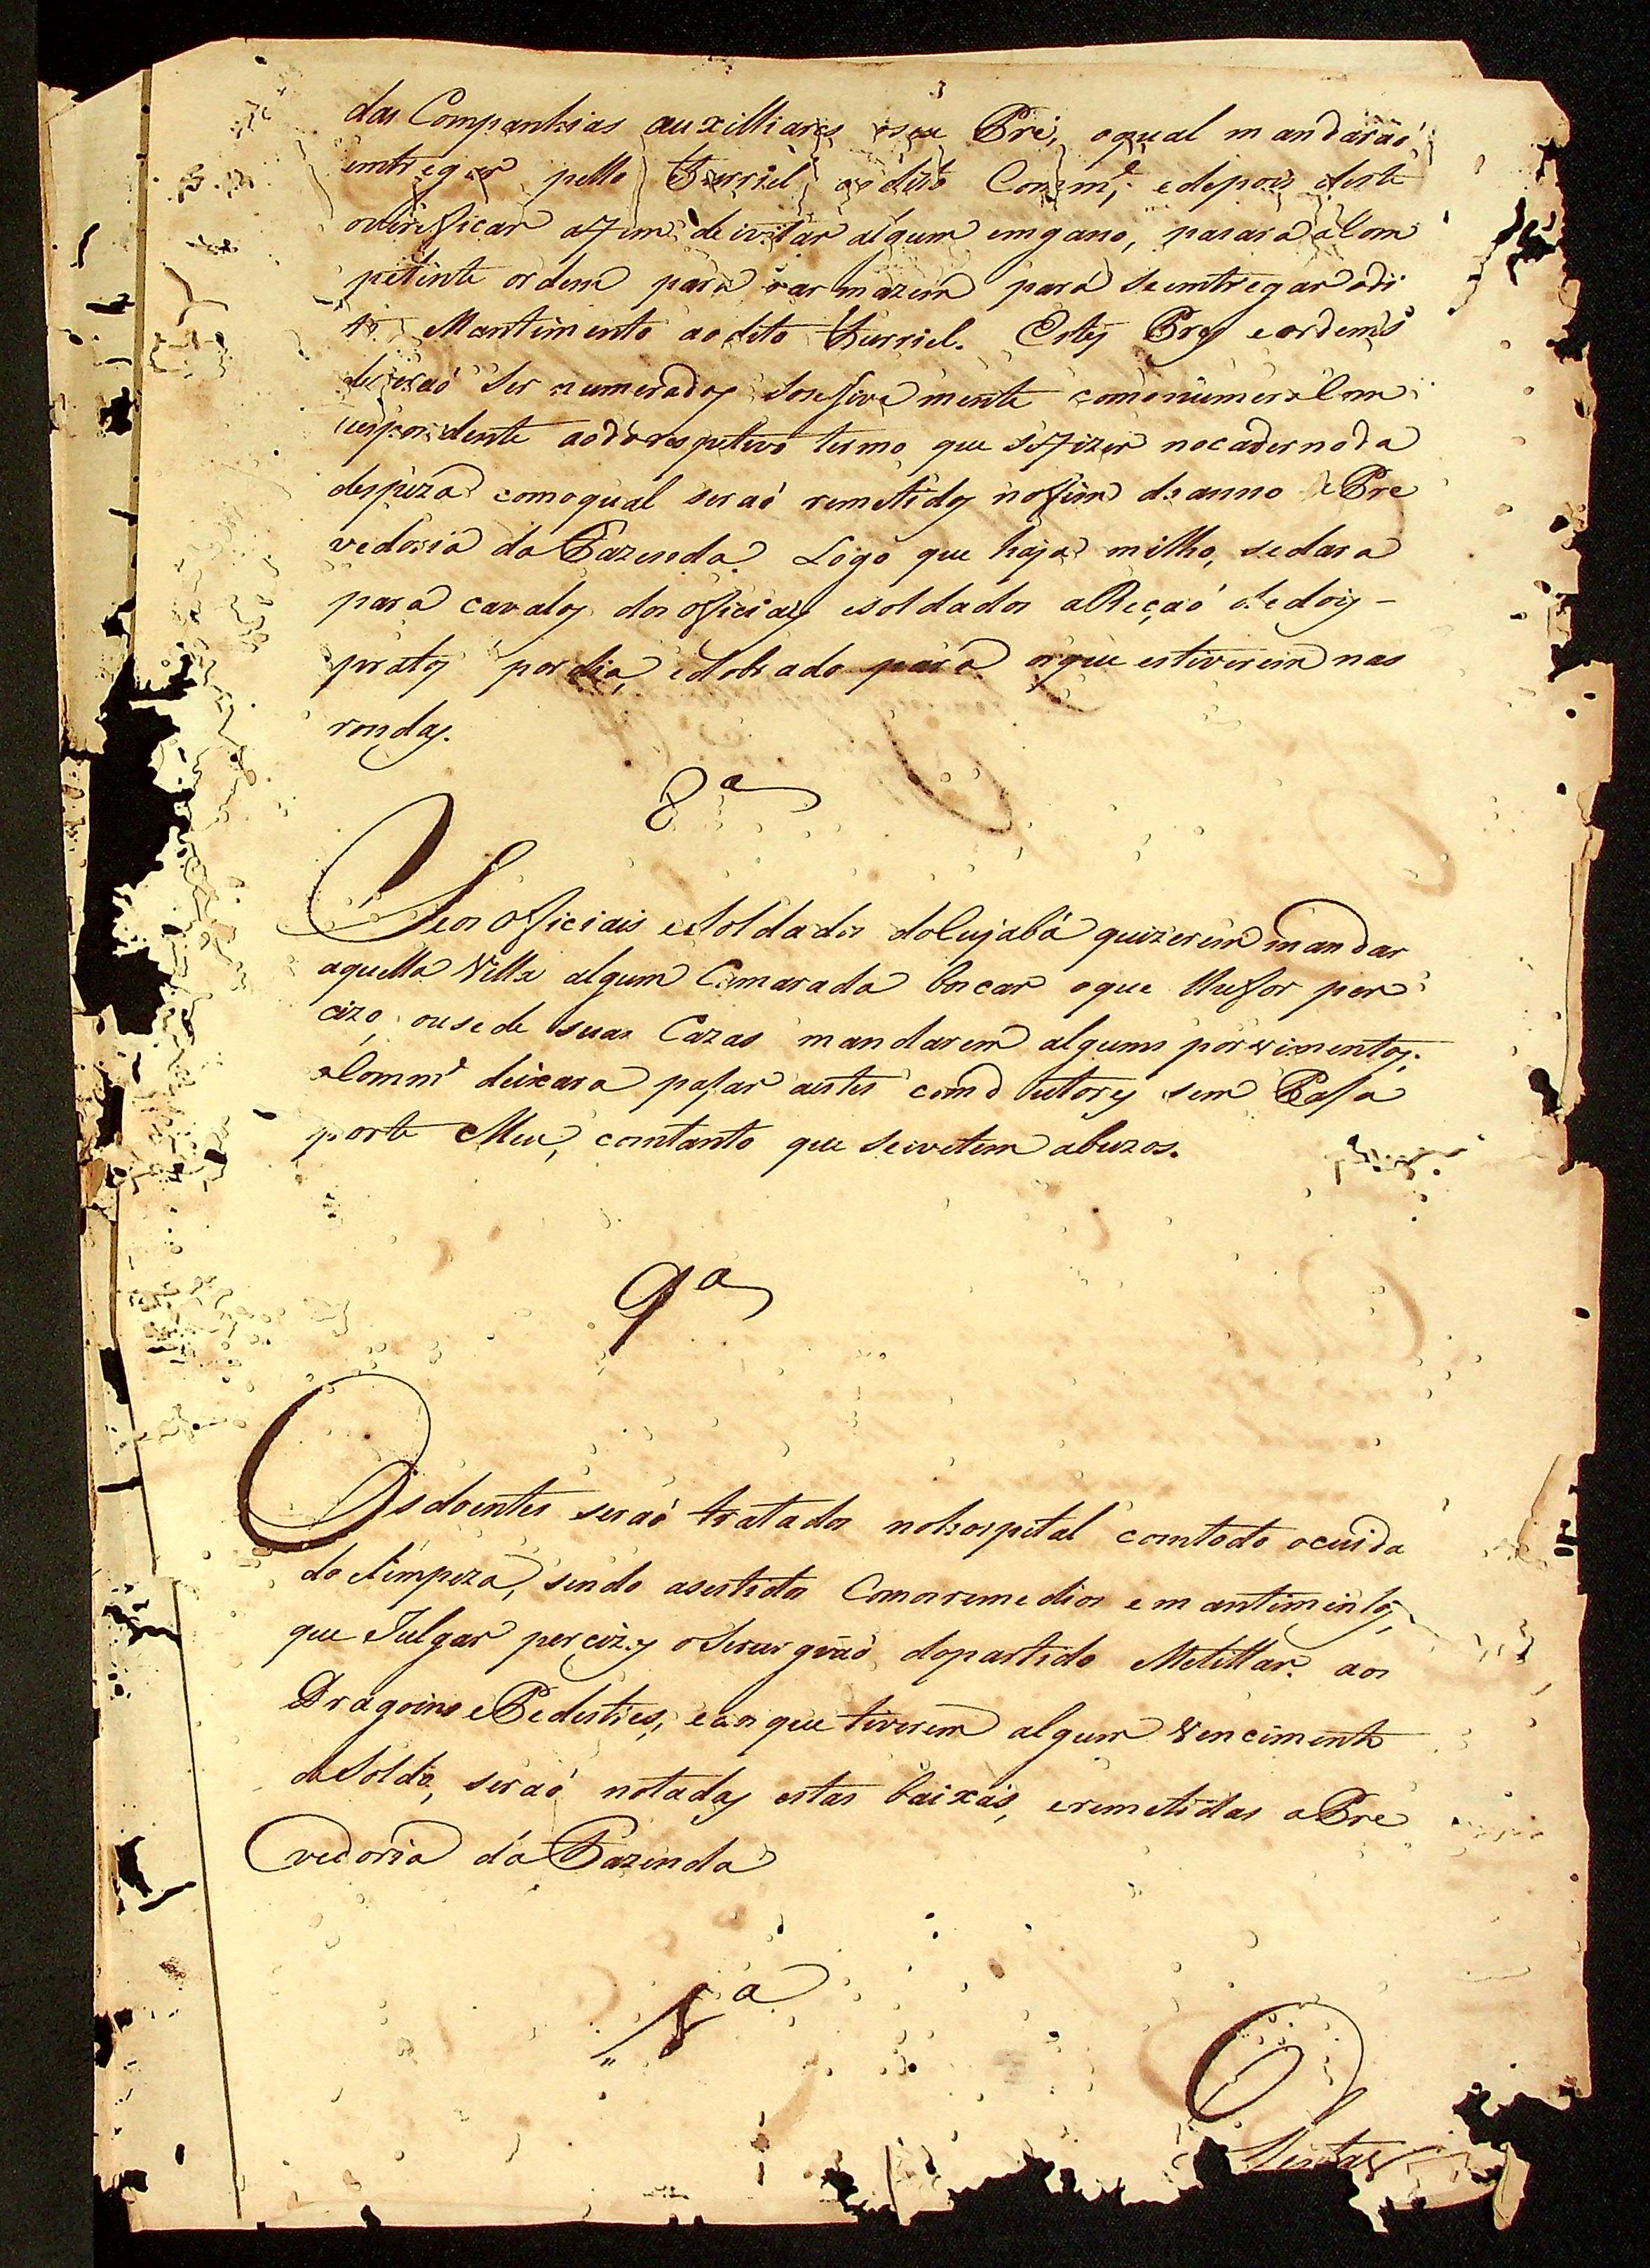 das Companhias auxilliares oseu Pré, oqual mandaraó
entregar pello Furriel ao dito Comm.e, edepois deste
overificar afim de ivitar algum emgano, pasara aCom
petente ordem para oarmazem para seentregar odi
to Mantimento ao dito Furriel. Estes Prés eordems
deveraó ser numerados sosesivamente comonumero Corr
respondente aodorespetivo termo que sefizer nocadernoda
despeza comoqual seraó remetidos nofim doanno aPre
vedoria da Fazenda. Logo que haja milho, sedara
para cavalos dos oficiais esoldados aReçaó dedois -
pratos pordia, edobrado para osque estiverem nas
rondas.
8.a
Seos oficiais esoldados doCujabá quizerem mandar
aquella Villa algum Camarada boscar oque lhefor per
cizo, ousede suas Cazas mandarem alguns porvimentos,
oComm.e deixara pasar aestes comdutores sem Pasa
porte Meu, comtanto que seivitem abuzos.
9.a
Osdoentes seraó tratados nohospital comtodo ocuida
do elimpeza, sendo asestidos Comosremedios emantimentos,
que Julgar percizos oSerurgiaó dopartido Melitar. aos
Dragoins ePedestres, eaos que tiverem algum vencimento
deSoldo, seraó notadas estas baixas, eremetidas aPre
vedoria da Fazenda